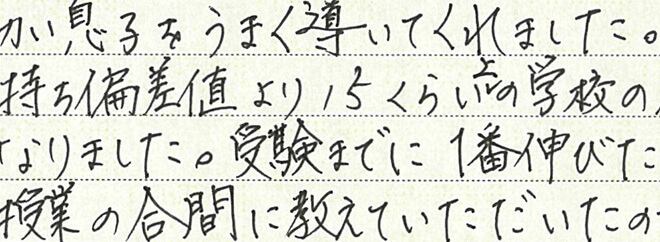 かい息子をうまく導いてくれました。
持ち偏差値より15くらい上の学校の
なりました。受験までに1番伸びた
授業の合間に教えていただいたの